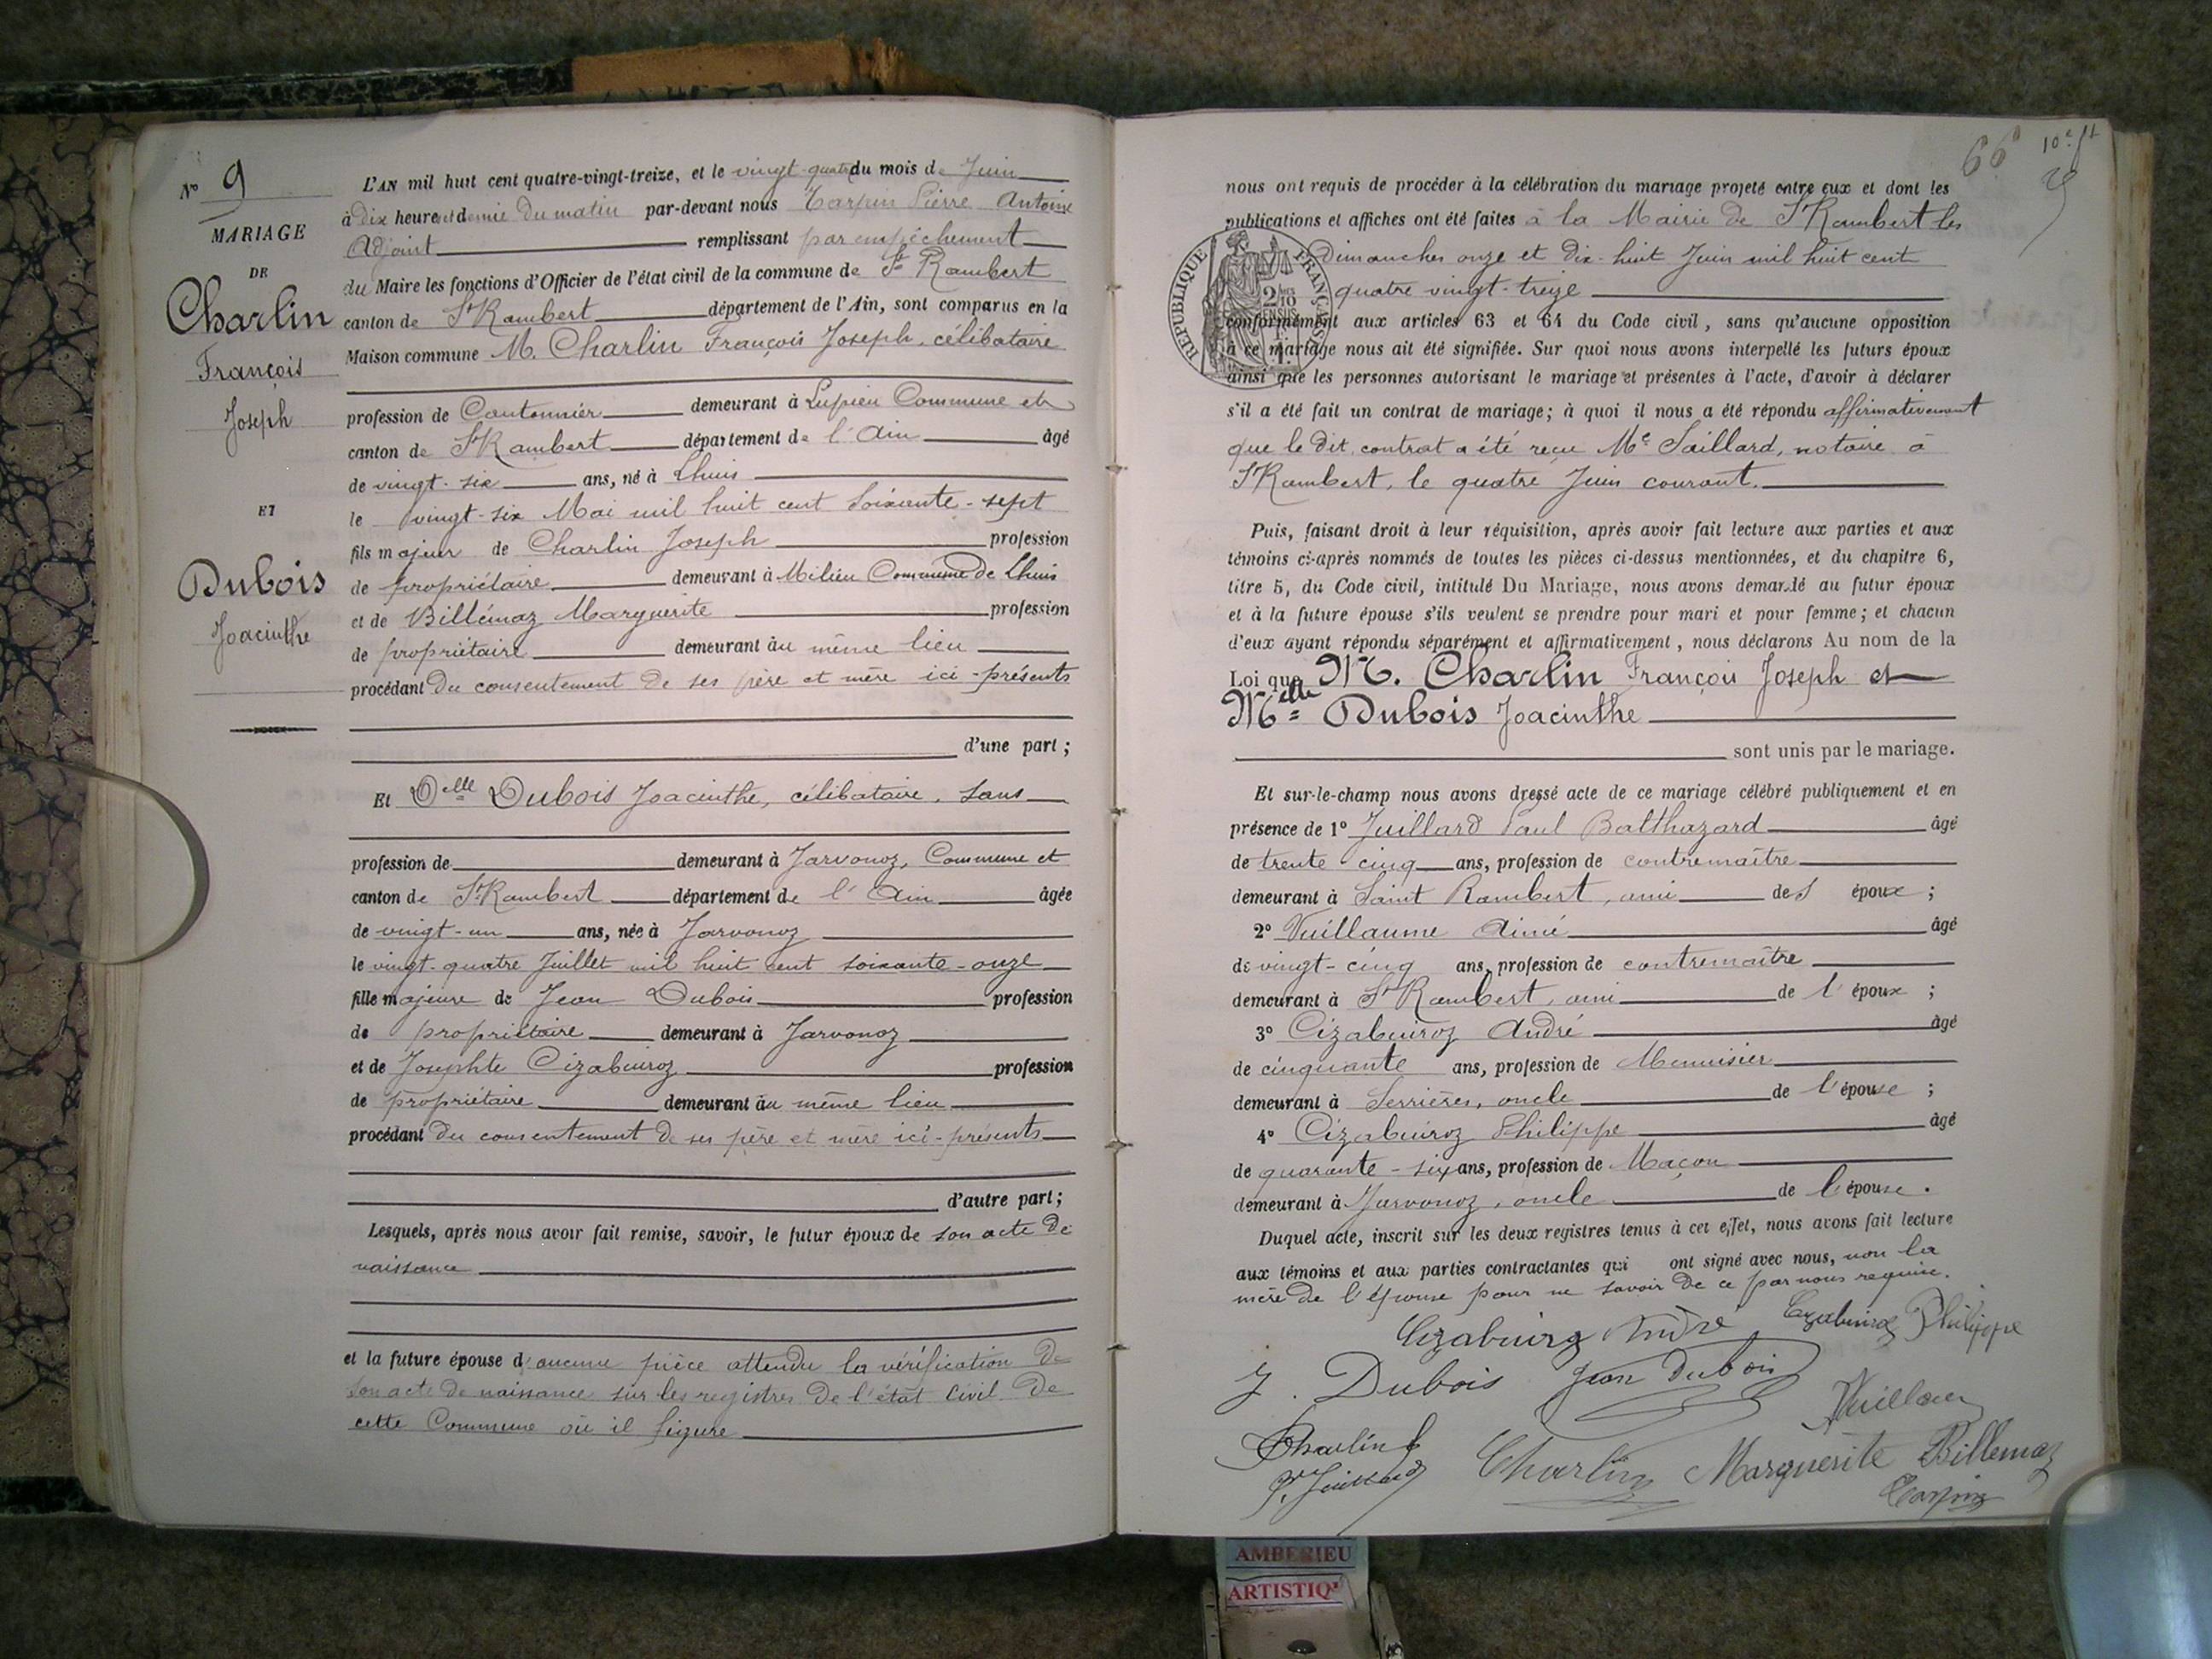 N° 9
MARIAGE
DE
Charlin
François
Joseph
ET
Dubois
Joacinthe
L'AN mil huit cent quatre-vingt-treize, et le vingt-quatre du mois de Juin
à Dix heures et demie du matin par-devant nous Tarpin Pierre Antoine
Adjoint remplissant par empêchement
du Maire les fonctions d'Officier de l'état civil de la commune de St Rambert
canton de St Rambert département de l'Ain, sont comparus en la
Maison commune M. Charlin François Joseph, célibataire
profession de Cantonnier demeurant à Lupieu Commune et
canton de St Rambert département de l'Ain âgé
de vingt-six ans, né à Lhuis
le vingt-six Mai mil huit cent soixante-sept
fils majeur de Charlin Joseph profession
de propriétaire demeurant à Milieu Commune de Lhuis
et de Billémaz Marguerite profession
de propriétaire demeurant au même lieu
procédant du consentement de ses père et mère ici-présents
d'une part ;
Et Delle Dubois Joacinthe, célibataire, sans
profession de demeurant à Javornoz, Commune et
canton de St Rambert département de l'Ain âgée
de vingt-un ans, née à Javornoz
le vingt-quatre Juillet mil huit cent soixante-onze
fille majeure de Jean Dubois profession
de propriétaire demeurant à Javornoz
et de Josephte Cizabuiroz profession
de propriétaire demeurant au même lieu
procédant du consentement de ses père et mère ici-présents
d'autre part ;
Lesquels, après nous avoir fait remise, savoir, le futur époux de son acte de
naissance
et la future épouse d'aucune pièce attendu la vérification de
son acte de naissance sur les registres de l'état civil de
cette Commune où il figure
66
10e ft
nous ont requis de procéder à la célébration du mariage projeté entre eux et dont les
publications et affiches ont été faites à la Mairie de St Rambert les
Dimanches onze et dix-huit Juin mil huit cent
quatre vingt-treize
conformément aux articles 63 et 64 du Code civil, sans qu'aucune opposition
à ce mariage nous ait été signifiée. Sur quoi nous avons interpellé les futurs époux
ainsi que les personnes autorisant le mariage et présentes à l'acte, d'avoir à déclarer
s'il a été fait un contrat de mariage ; à quoi il nous a été répondu affirmativement
que le dit contrat a été reçu Me Saillard, notaire à
St Rambert, le quatre Juin courant.
RÉPUBLIQUE FRANÇAISE
Puis, faisant droit à leur réquisition, après avoir fait lecture aux parties et aux
témoins ci-après nommés de toutes les pièces ci-dessus mentionnées, et du chapitre 6,
titre 5, du Code civil, intitulé Du Mariage, nous avons demandé au futur époux
et à la future épouse s'ils veulent se prendre pour mari et pour femme ; et chacun
d'eux ayant répondu séparément et affirmativement, nous déclarons Au nom de la
Loi que M. Charlin François Joseph et
Melle Dubois Joacinthe
sont unis par le mariage.
Et sur-le-champ nous avons dressé acte de ce mariage célébré publiquement et en
présence de 1° Juillard Paul Balthazard âgé
de trente cinq ans, profession de contremaître
demeurant à Saint Rambert, ami des époux ;
2° Vuillaume Aimé âgé
de vingt-cinq ans, profession de contremaître
demeurant à St Rambert, ami de l'époux ;
3° Cizabuiroz André âgé
de cinquante ans, profession de Menuisier
demeurant à Serrières, oncle de l'épouse ;
4° Cizabuiroz Philippe âgé
de quarante-six ans, profession de Maçon
demeurant à Javornoz, oncle de l'épouse.
Duquel acte, inscrit sur les deux registres tenus à cet effet, nous avons fait lecture
aux témoins et aux parties contractantes qui ont signé avec nous, non la
mère de l'épouse pour ne savoir de ce par nous requise.
Cizabuiroz André Cizabuiroz Philippe
J. Dubois Jean Dubois
AVuillaume
Charlin f
P. Juillard Charlin Marguerite Billemaz
Tarpin
AMBERIEU
ARTISTIQ